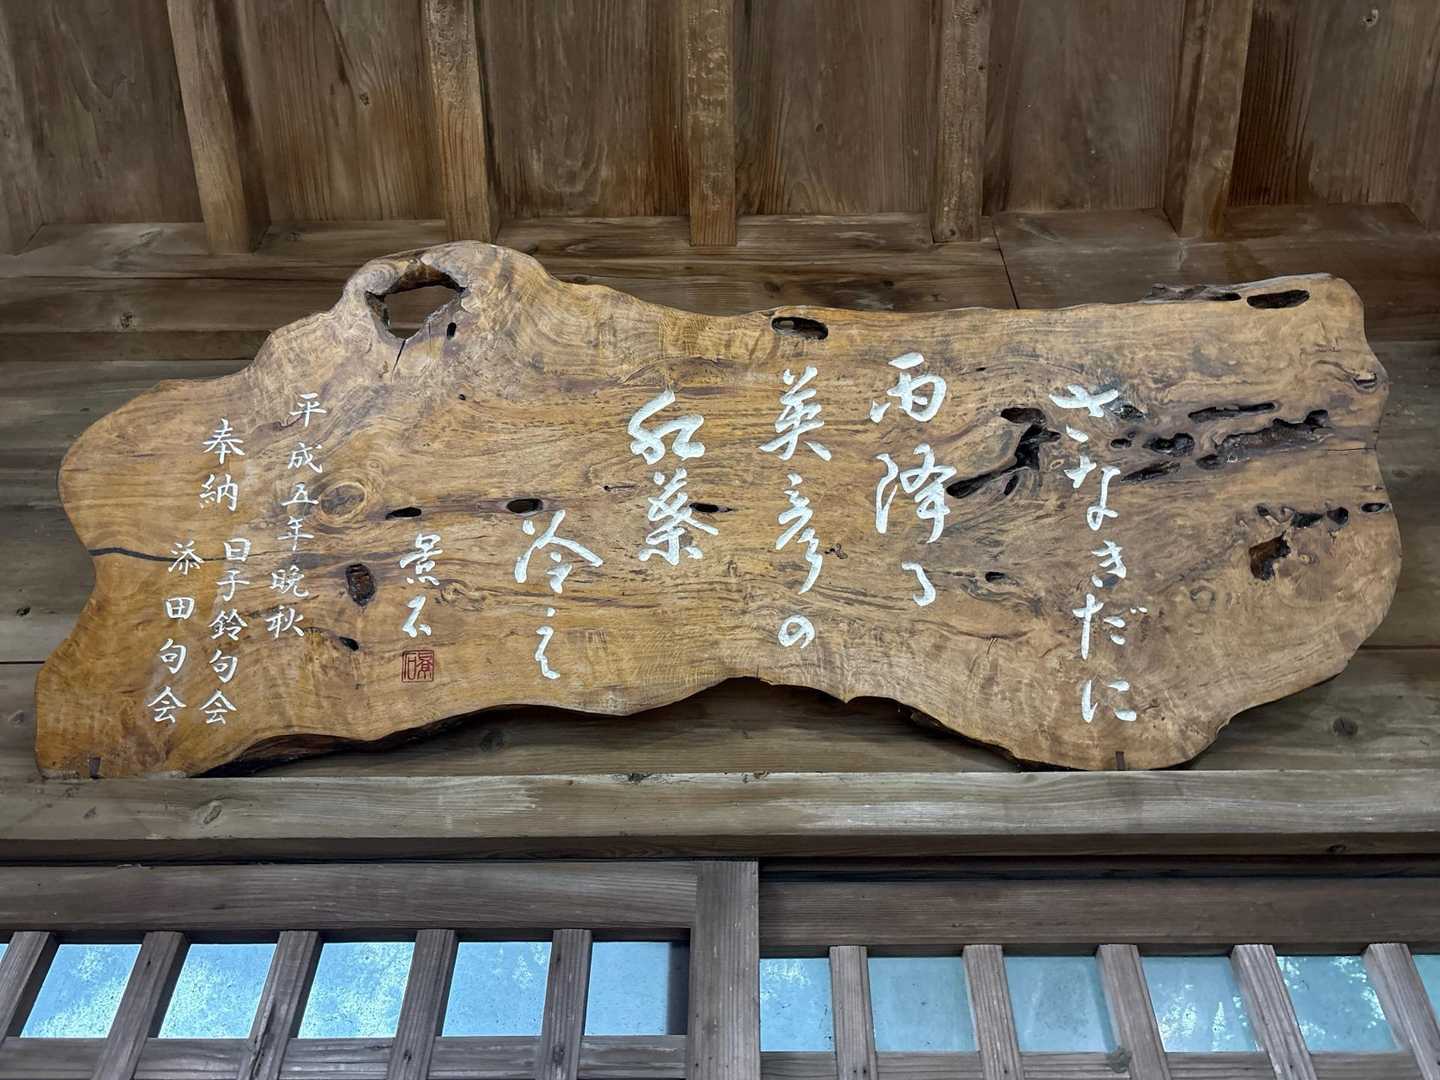 さなきだに
雨降る
英彦の
紅葉
冷え
景石
景石
平成五年晩秋
奉納 日子鈴句会
添田句会